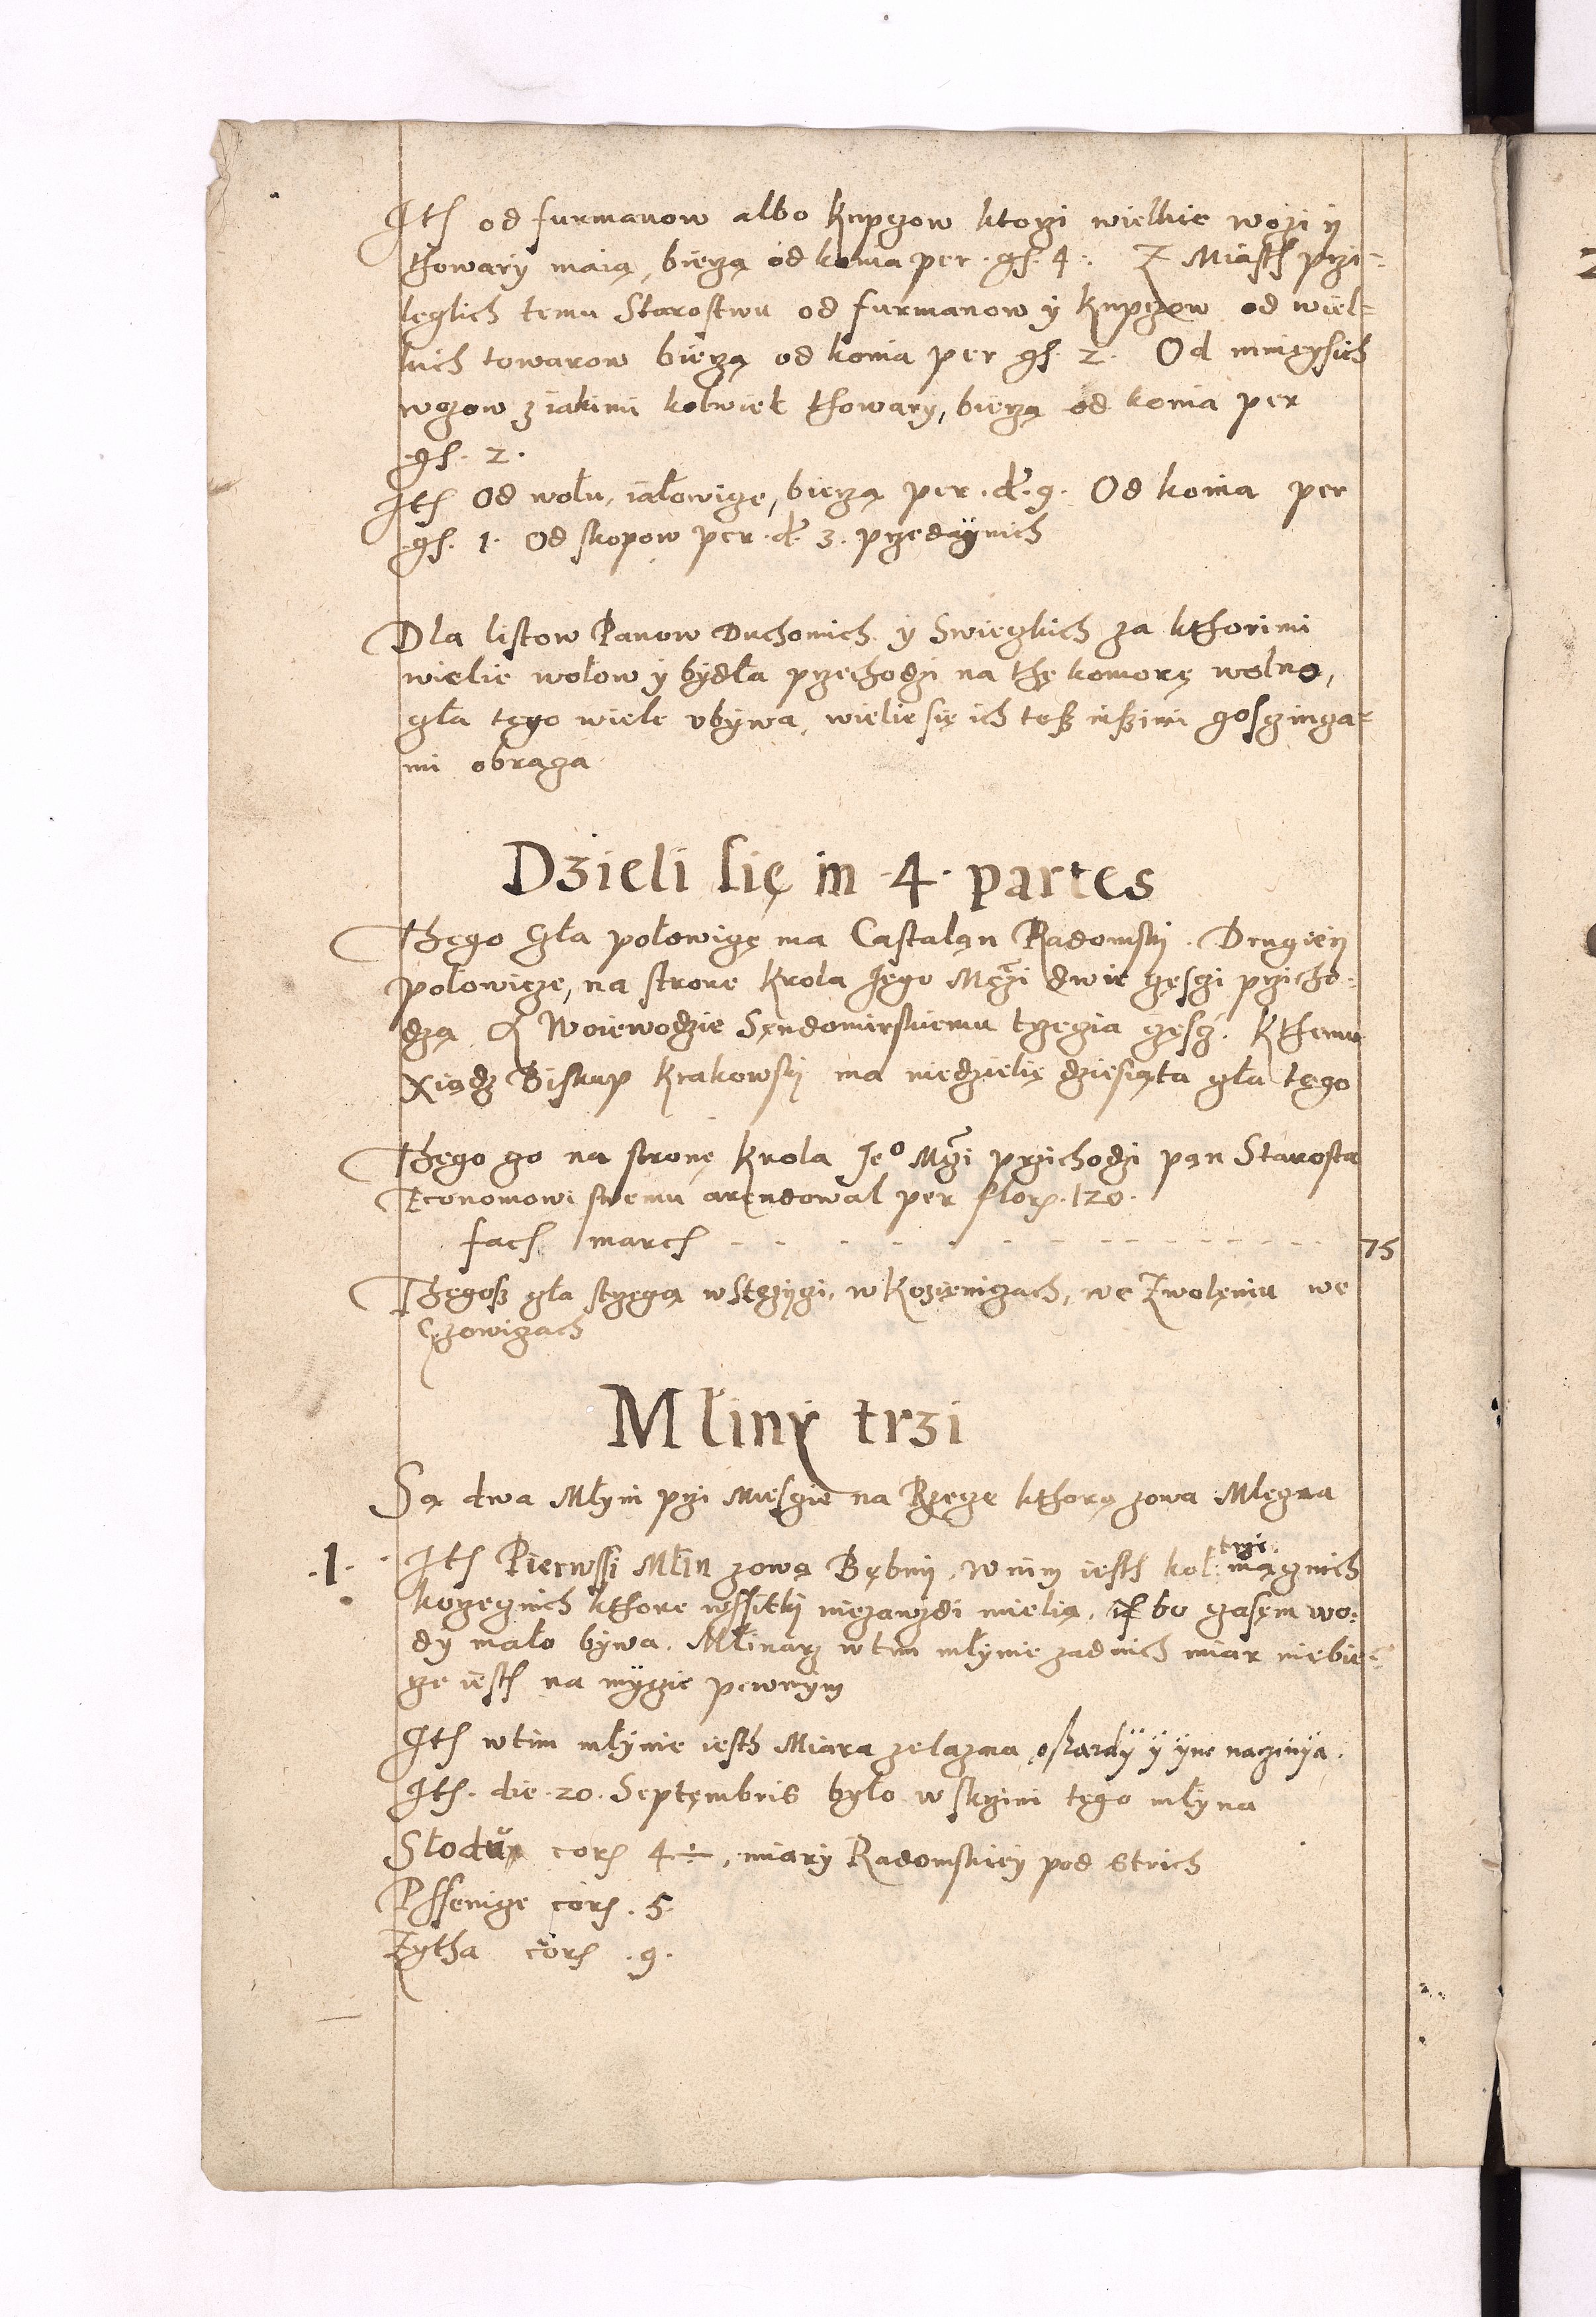 Itḿ od furmanow albo kupczow ktorzi wielkie wozi y
thowary maią, bierzą od konia per. gſ. 4. Z Miasth przi-
leglich temu Starostwu od furmanow y kupczow od wiel-
kich towarow bierzą od konia per gſ. 2. Od mnieyſich
wozow z iakimi kolwiek thowary, bierzą od konia per
gſ. 2.
Itḿ Od wołu, iałowicze, bierzą per. d. 9. Od konia per
gſ. 1. Od skopow per. d. 3. przedaynich
Dla listow Panow Duchownich y Swieczkich za kthorimi
wielie wołow y bydła przechodzi na thę komorę wolno,
cła tego wiele vbywa, wielie się ich tesz inszimi gosczincza-
mi obracza
Dzieli się in 4. partes
Thego Cła połowiczę ma Castalan Radomsky. Drugiey
połowicze, na strone krola Jego Mczi dwie częsczi przicho-
dzą A Woiewodzie Sendomirskiemu trzeczia częscz. kthemu
Xiądz Biskup krakowsky ma niedzielię dziesiąta cła tego
Thego co na stronę krola Jeo Mczi przichodzi pan Starosta
Economowi swemu arendował per flor. 120.
facḿ marcḿ - - - - - - - - - - - 75
Thegosz cła strzegą w Stęzyczi, w Kozieniczach, we Zwoleniu we
Czowiczach
Młiny trzi
Są dwa Młyni przi Miesczie na Rzecze kthorą zowa Mleczna
.1. Itḿ Pierwſſi Młin zową Bębny, w nim iesth koł trzi mącznich
korzecznich kthore wſſitki niezawzdi mielią, bo czasem wo-
dy mało bywa. Młinarz w tim młynie zadnich miar niebie-
rze iesth na myczie pewnym
Itḿ w tim młynie iesth Miara zelazna, oskardy y yne naczinya.
Itḿ. die. 20. Septembris było w skrzini tego młyna
Słodu corḿ 4 ÷, miary Radomskiey pod strich
Pſſenicze corḿ. 5
Zytha corḿ. 9.